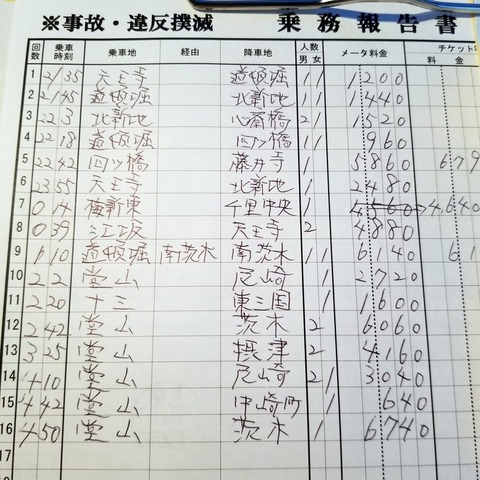 ※事故・違反撲滅 乗務報告書
回数 乗車時刻 乗車地 経由 降車地 人数 男 女 メータ料金 チケット 料 金
1 21 35 天王寺 道頓堀 1 1 1200
2 21 45 道頓堀 北新地 1 1 1440
3 22 3 北新地 心斎橋 2 1 1520
4 22 18 道頓堀 四ツ橋 1 1 960
5 22 42 四ツ橋 藤井寺 1 5860 679
6 23 55 天王寺 北新地 1 2480
7 0 14 梅新東 千里中央 1 4,640
8 0 39 江坂 天王寺 2 4880
9 1 10 道頓堀 南茨木 南茨木 1 1 6140 61
10 2 2 堂山 尼崎 1 2720
11 2 20 十三 東三国 1 1600
12 2 42 堂山 茨木 2 6060
13 3 25 堂山 摂津 2 4160
14 4 10 堂山 尼崎 2 1 3040
15 4 42 堂山 中崎町 1 640
16 4 50 堂山 茨木 1 6740
17